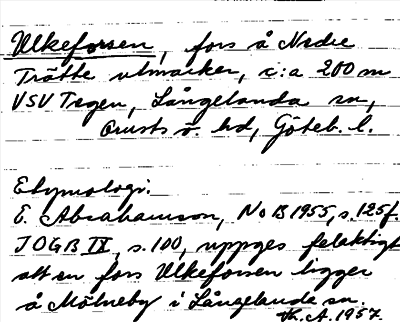 Ulkeforsen, fors å Nedre
Trätte utmarker, c:a 200 m
VSV Tegen, Långelanda sn,
Orusts v. hd, Göteb. l.
Etymologi:
E. Abrahamson, NoB 1955, s. 125f.
IOGB IX, s. 100, uppges felaktigt
att en fors Ulkeforsen ligger
å Mölneby i Långelanda sn.
Th. A. 1957.